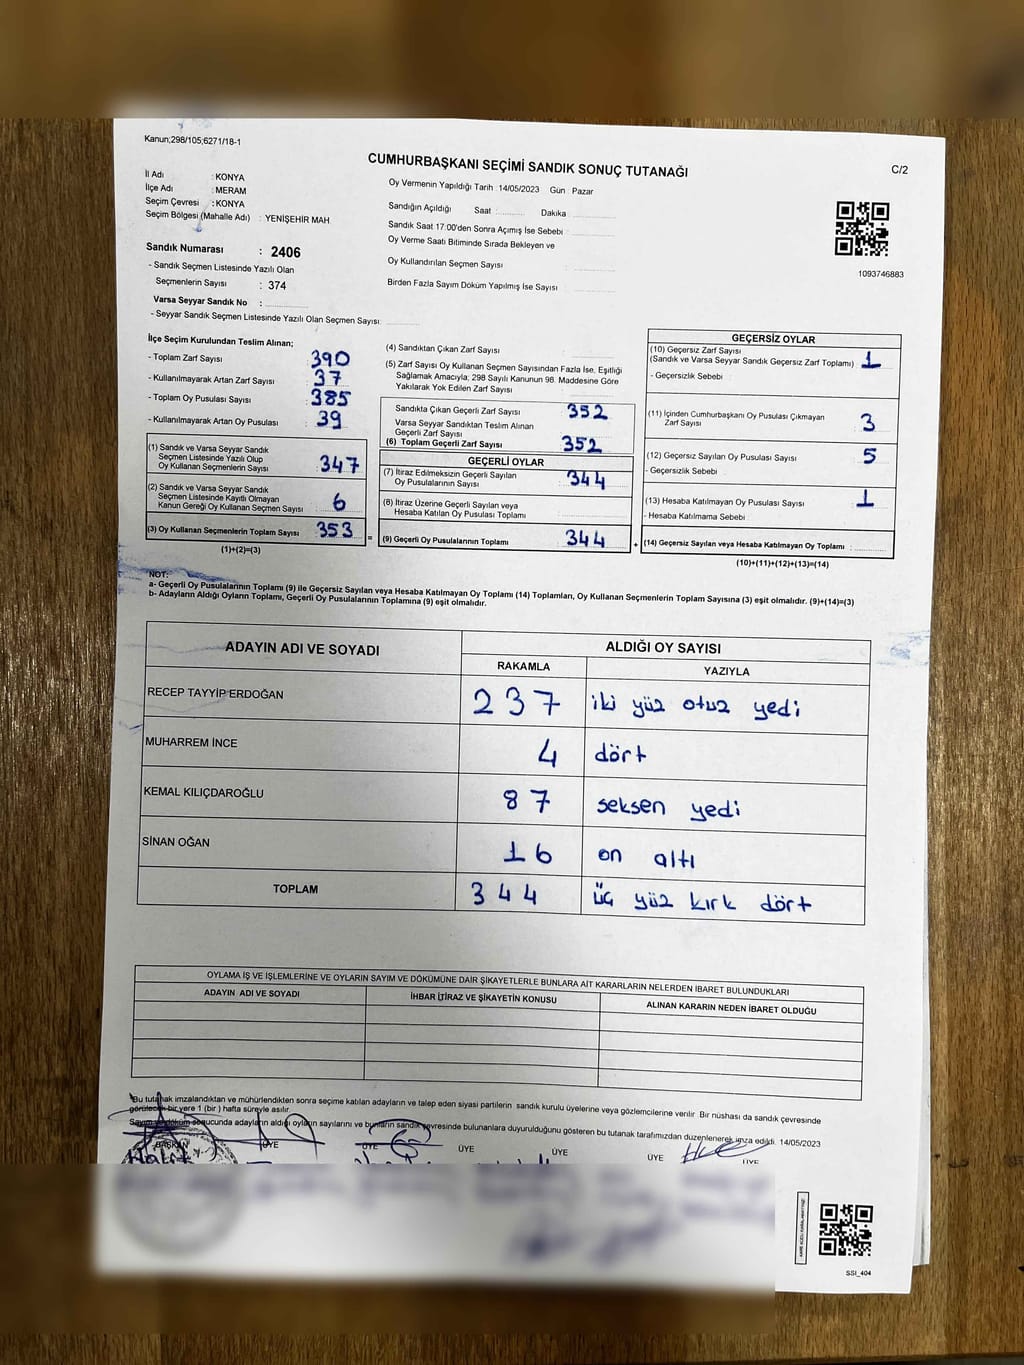 Kanun;298/105;6271/18-1
CUMHURBAŞKANI SEÇİMİ SANDIK SONUÇ TUTANAĞI
C/2
İl Adı : KONYA
İlçe Adı : MERAM
Seçim Çevresi : KONYA
Seçim Bölgesi (Mahalle Adı) : YENİŞEHİR MAH.
Sandık Numarası : 2406
- Sandık Seçmen Listesinde Yazılı Olan
Seçmenlerin Sayısı : 374
Varsa Seyyar Sandık No :
- Seyyar Sandık Seçmen Listesinde Yazılı Olan Seçmen Sayısı:
Oy Vermenin Yapıldığı Tarih : 14/05/2023 Gün : Pazar
Sandığın Açıldığı Saat Dakika
Sandık Saat 17:00'den Sonra Açımış İse Sebebi :
Oy Verme Saati Bitiminde Sırada Bekleyen ve
Oy Kullandırılan Seçmen Sayısı :
Birden Fazla Sayım Döküm Yapılmış İse Sayısı :
1093746883
İlçe Seçim Kurulundan Teslim Alınan;
- Toplam Zarf Sayısı : 390
- Kullanılmayarak Artan Zarf Sayısı : 37
- Toplam Oy Pusulası Sayısı : 385
- Kullanılmayarak Artan Oy Pusulası : 39
(1) Sandık ve Varsa Seyyar Sandık
Seçmen Listesinde Yazılı Olup
Oy Kullanan Seçmenlerin Sayısı : 347
(2) Sandık ve Varsa Seyyar Sandık
Seçmen Listesinde Kayıtlı Olmayan
Kanun Gereği Oy Kullanan Seçmen Sayısı : 6
(3) Oy Kullanan Seçmenlerin Toplam Sayısı : 353
(1)+(2)=(3)
(4) Sandıktan Çıkan Zarf Sayısı :
(5) Zarf Sayısı Oy Kullanan Seçmen Sayısından Fazla İse, Eşitliği
Sağlamak Amacıyla; 298 Sayılı Kanunun 98. Maddesine Göre
Yakılarak Yok Edilen Zarf Sayısı
Sandıkta Çıkan Geçerli Zarf Sayısı : 352
Varsa Seyyar Sandıktan Teslim Alınan
Geçerli Zarf Sayısı
(6) Toplam Geçerli Zarf Sayısı : 352
GEÇERLİ OYLAR
(7) İtiraz Edilmeksizin Geçerli Sayılan
Oy Pusulalarının Sayısı : 344
(8) İtiraz Üzerine Geçerli Sayılan veya
Hesaba Katılan Oy Pusulası Toplamı
= (9) Geçerli Oy Pusulalarının Toplamı : 344 +
GEÇERSİZ OYLAR
(10) Geçersiz Zarf Sayısı
(Sandık ve Varsa Seyyar Sandık Geçersiz Zarf Toplamı) : 1
- Geçersizlik Sebebi :
(11) İçinden Cumhurbaşkanı Oy Pusulası Çıkmayan
Zarf Sayısı : 3
(12) Geçersiz Sayılan Oy Pusulası Sayısı : 5
- Geçersizlik Sebebi :
(13) Hesaba Katılmayan Oy Pusulası Sayısı : 1
- Hesaba Katılmama Sebebi :
(14) Geçersiz Sayılan veya Hesaba Katılmayan Oy Toplamı :
(10)+(11)+(12)+(13)=(14)
NOT:
a- Geçerli Oy Pusulalarının Toplamı (9) ile Geçersiz Sayılan veya Hesaba Katılmayan Oy Toplamı (14) Toplamları, Oy Kullanan Seçmenlerin Toplam Sayısına (3) eşit olmalıdır. (9)+(14)=(3)
b- Adayların Aldığı Oyların Toplamı, Geçerli Oy Pusulalarının Toplamına (9) eşit olmalıdır.
ADAYIN ADI VE SOYADI ALDIĞI OY SAYISI
RAKAMLA YAZIYLA
RECEP TAYYİP ERDOĞAN 237 iki yüz otuz yedi
MUHARREM İNCE 4 dört
KEMAL KILIÇDAROĞLU 87 seksen yedi
SİNAN OĞAN 16 on altı
TOPLAM 344 üç yüz kırk dört
OYLAMA İŞ VE İŞLEMLERİNE VE OYLARIN SAYIM VE DÖKÜMÜNE DAİR ŞİKAYETLERLE BUNLARA AİT KARARLARIN NELERDEN İBARET BULUNDUKLARI
ADAYIN ADI VE SOYADI İHBAR İTİRAZ VE ŞİKAYETİN KONUSU ALINAN KARARIN NEDEN İBARET OLDUĞU
Bu tutanak imzalandıktan ve mühürlendikten sonra seçime katılan adayların ve talep eden siyasi partilerin sandık kurulu üyelerine veya gözlemcilerine verilir. Bir nüshası da sandık çevresinde
görülecek bir yere 1 (bir) hafta süreyle asılır.
Sayım ve döküm sonucunda adayların aldığı oyların sayılarını ve bunların sandık çevresinde bulunanlara duyurulduğunu gösteren bu tutanak tarafımızdan düzenlenerek imza edildi. 14/05/2023
BAŞKAN ÜYE ÜYE ÜYE ÜYE ÜYE ÜYE
SSI_404